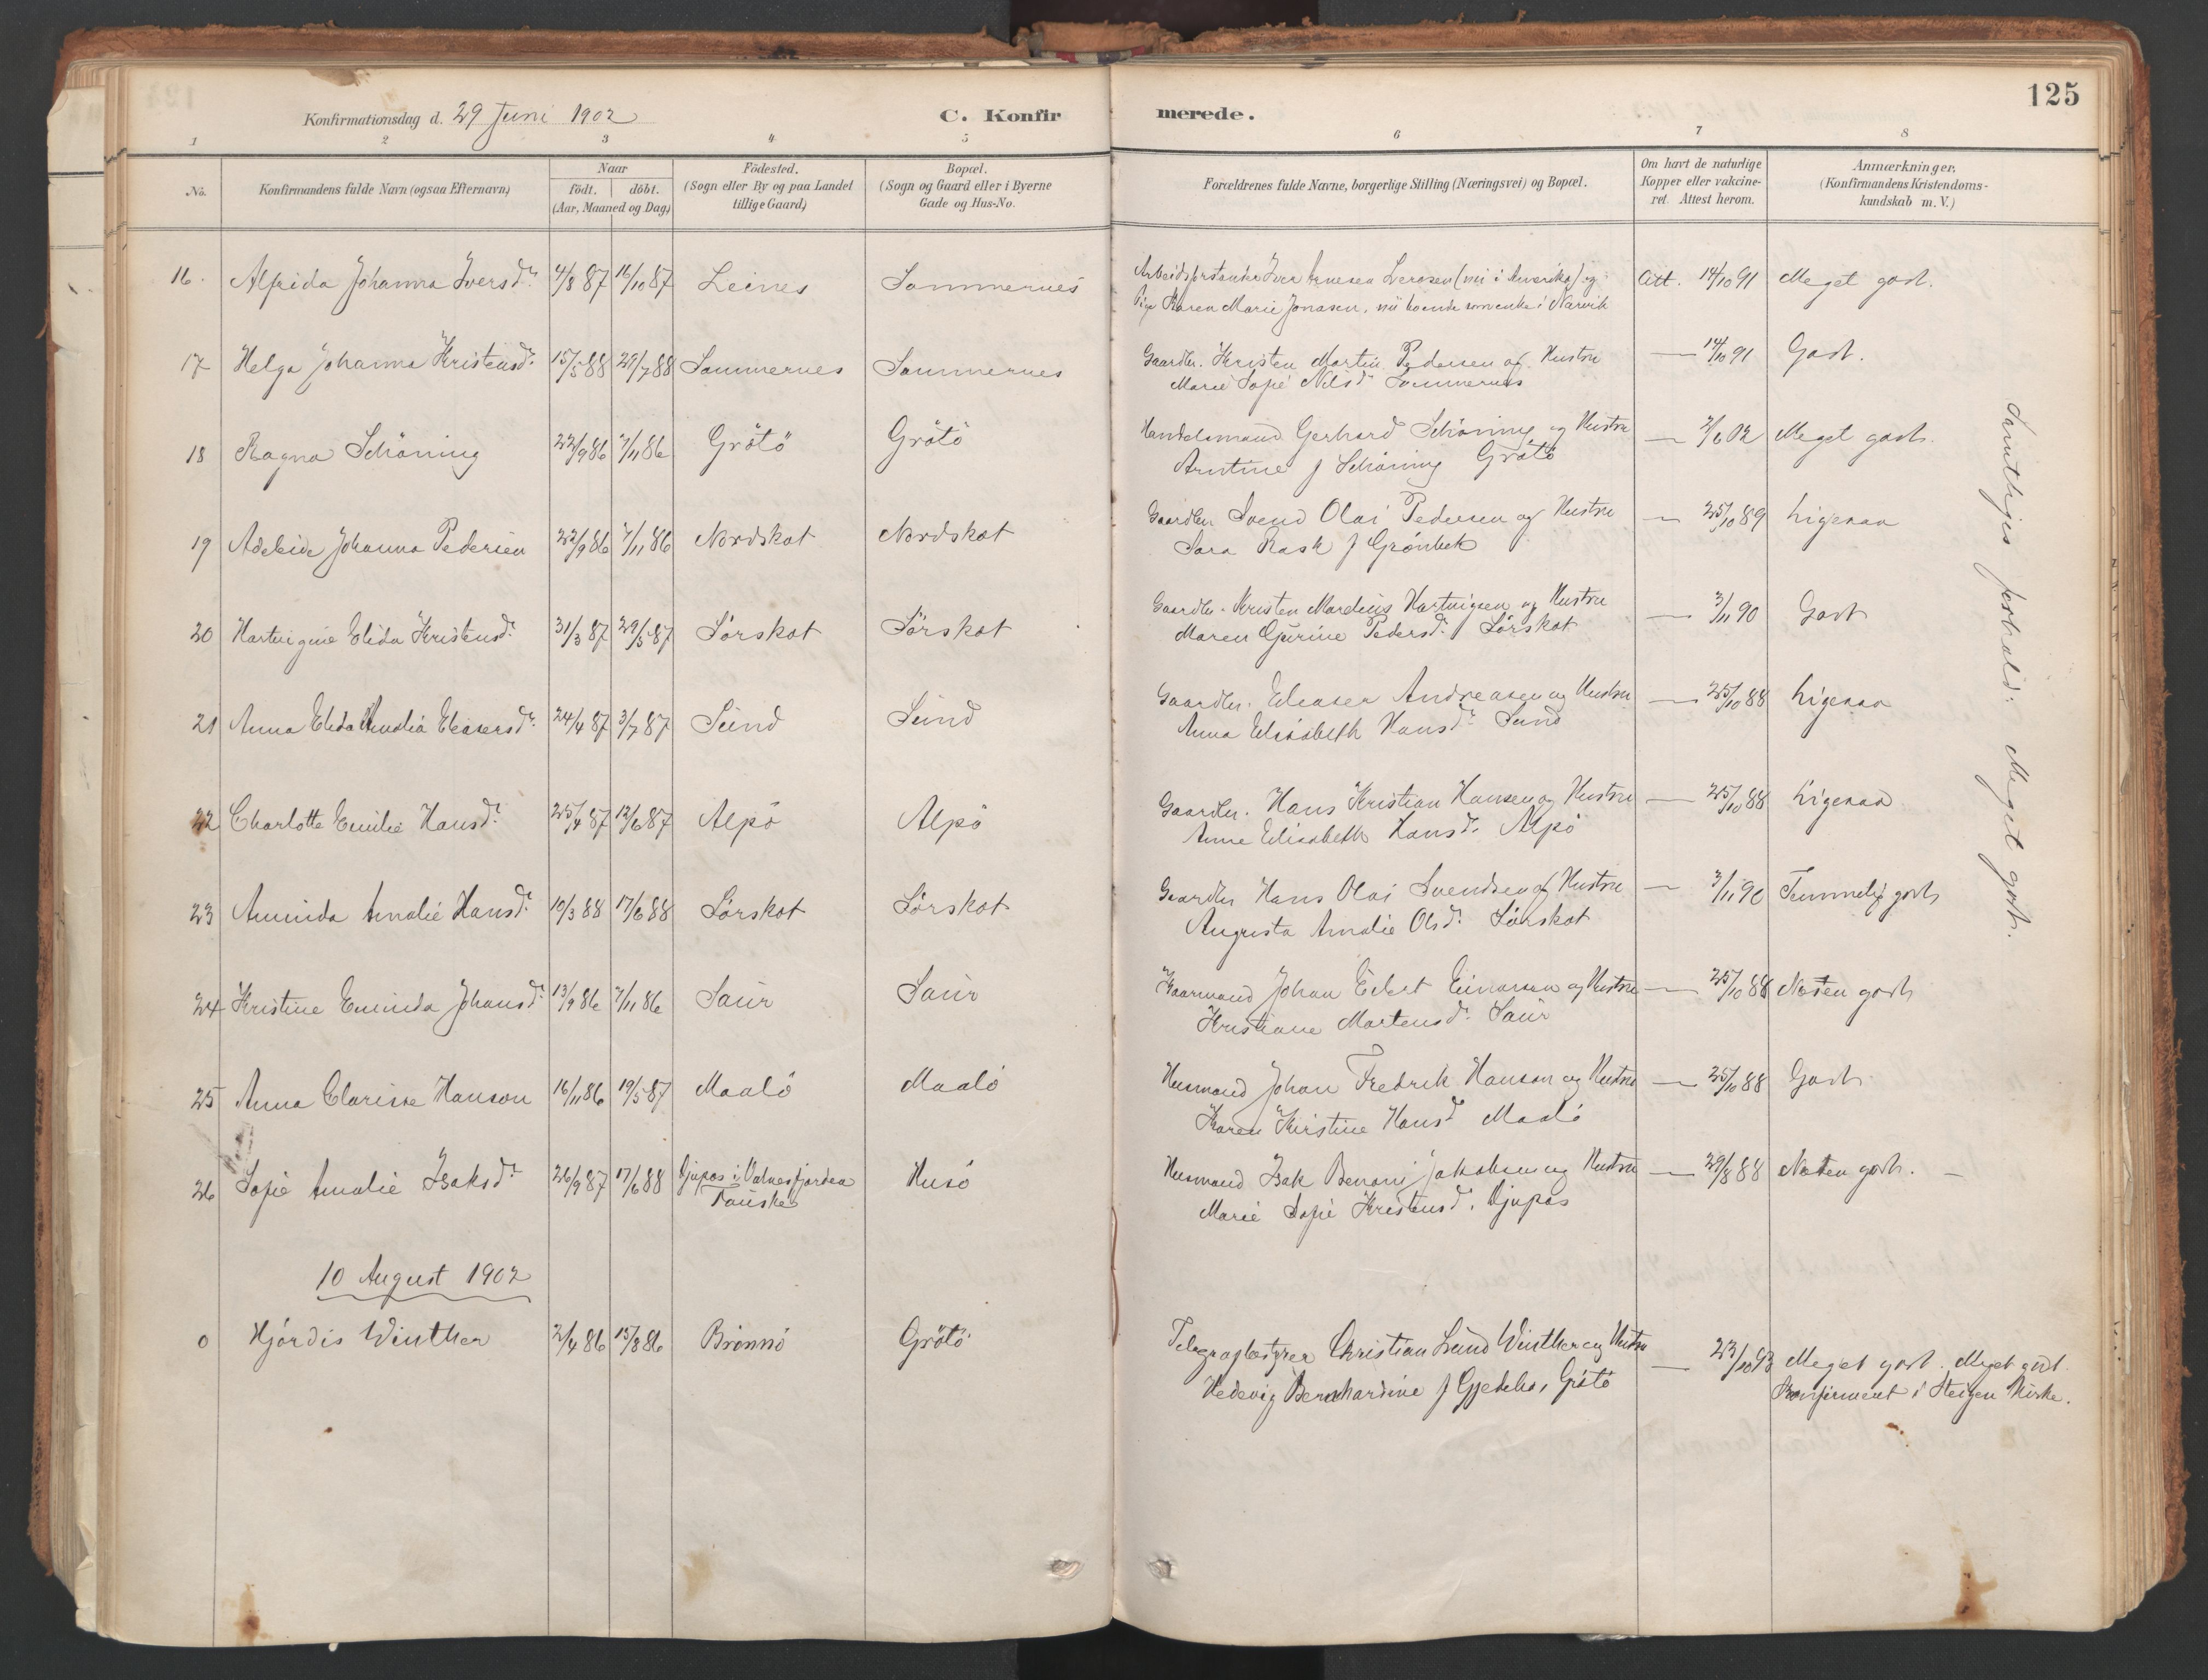 125
Konfirmationsdag d. 29 Juni 1902
C. Konfirmerede.
1 2 3 4 5 6 7 8
No.
Konfirmandens fulde Navn (ogsaa Efternavn)
Naar
födt. döbt.
(Aar, Maaned og Dag)
Födested.
(Sogn eller By og paa Landet
tillige Gaard)
Bopæl.
(Sogn og Gaard eller i Byerne
Gade og Hus-No.
Forældrenes fulde Navne, borgerlige Stilling (Næringsvei) og Bopæl.
Om havt de naturlige
Kopper eller vakcine-
ret. Attest herom.
Anmærkninger.
(Konfirmandens Kristendoms-
kundskab m. V.)
16. Alfrida Johanna Iversdr. 4/8 87 16/10 87 Leines Sammernes Iver Arnesen Iversen (nu i Amerika) og Att. 14/10 91 Meget godt.
Pige Karen Marie Jonasen, nu boende som enke i Narvik
17 Helga Johanna Kristensdr. 15/5 88 29/7 88 Sammernes Sammernes Gaardbr. Kristen Martin Pedersen og Hustru — 14/10 91 Godt.
Marie Sofie Nilsdr Sammernes
18 Ragna Schöning 22/9 86 7/11 86 Grötö Grötö Handelsmand Gerhard Schöning og Hustru — 2/6 02 Meget godt.
Arntine f Schöning Grötö
19 Adeleide Johanna Pedersen 22/9 86 7/11 86 Nordskot Nordskot Gaardbr Svend Olai Pedersen og Hustru — 25/10 89 Ligesaa
Sara Rask f Grönbek
20 Hartvigine Elida Kristensdr. 31/3 87 29/5 87 Sörskot Sörskot Gaardbr. Kristen Mardius Hartvigsen og Hustru — 3/11 90 Godt
Maren Gurine Pedersdr. Sörskot
21 Anna Elida Amalia Eleasersdr. 24/4 87 3/7 87 Sund Sund Gaardbr. Eleaser Andreasen og Hustru — 25/10 88 Ligesaa
Anna Elisabeth Hansdr. Sund
22 Charlotte Emilie Hansdr. 25/4 87 12/6 87 Alpö Alpö Gaardbr. Hans Kristian Hansen og Hustru — 25/10 88 Ligesaa
Anne Elisabeth Hansdr. Alpö
23 Aminda Amalie Hansdr. 10/3 88 17/6 88 Sörskot Sörskot Gaardbr Hans Olai Svendsen og Hustru — 3/11 90 Temmelig godt
Augusta Amalie Olsdr. Sörskot
24 Kristine Eminda Johansdr. 13/9 86 7/11 86 Saur Saur Kaarmand Johan Edert Einarsen og Hustru — 25/10 88 Næsten godt
Kristiane Martensdr. Saur
25 Anna Clarisse Hanson 16/11 86 19/5 87 Maalö Maalö Husmand Johan Fredrik Hanson og Hustru — 25/10 88 Godt
Karen Kirstine Hansdr Maalö
26 Sofie Amalie Isaksdr. 26/9 87 17/6 88 Djupos i Valnesfjorden Husö Husmand Isak Benoni Jakobsen og Hustru — 29/8 88 Næsten godt. —
Fauske
Marie Sofie Kristensd. Djupos
10 August 1902
0 Hjördis Winther 2/4 86 15/8 86 Brönnö Grötö Telegrafbestyrer Christian Lund Winther og Hustru — 23/10 93 Meget godt. Meget godt.
Hedevig Bernhardine f Gjedebo, Grötö
Konfirmeret i Steigen Kirke.
Samtliges forhold: Meget godt.